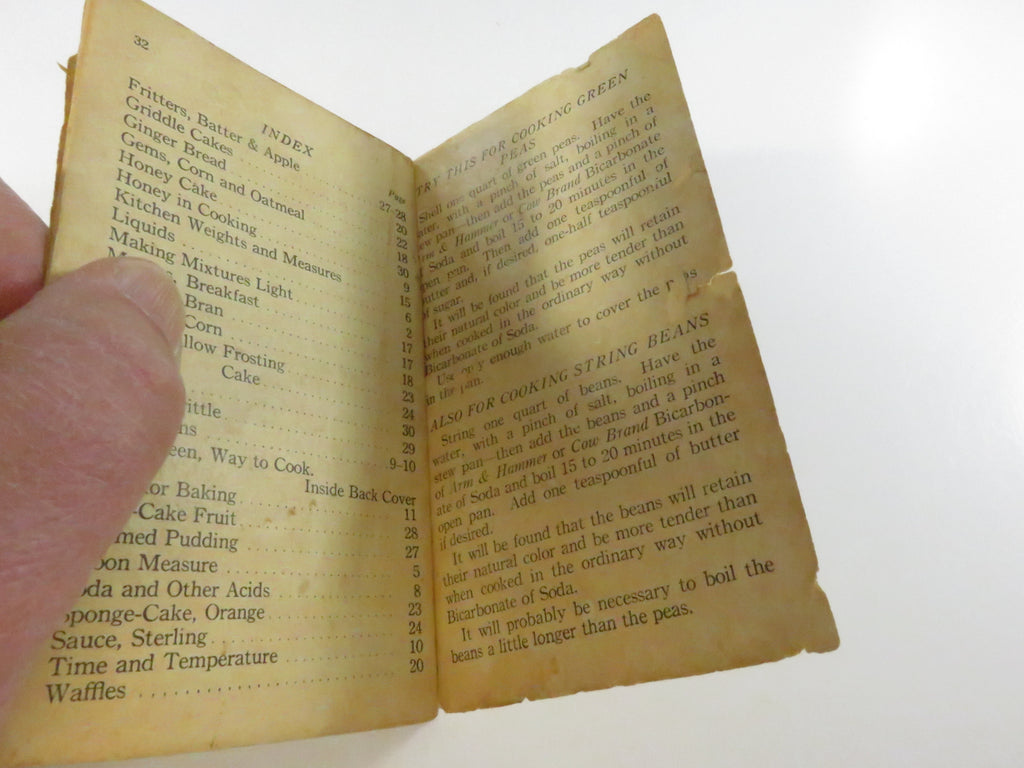 32
INDEX
Page
Fritters, Batter & Apple 27-28
Griddle Cakes 20
Ginger Bread 22
Gems, Corn and Oatmeal 18
Honey Cake 30
Honey in Cooking 9
Kitchen Weights and Measures 15
Liquids 6
Making Mixtures Light 2
Breakfast 17
Bran 17
Corn 18
Frosting 23
Cake 24
30
29
9-10
Way to Cook.
Inside Back Cover
Baking 11
-Cake Fruit 28
Pudding 27
Measure 5
and Other Acids 8
Sponge-Cake, Orange 23
Sauce, Sterling 24
Time and Temperature 10
Waffles 20
TRY THIS FOR COOKING GREEN
PEAS
Shell one quart of green peas. Have the
water, with a pinch of salt, boiling in a
stew pan—then add the peas and a pinch of
Arm & Hammer or Cow Brand Bicarbonate
of Soda and boil 15 to 20 minutes in the
open pan. Then add one teaspoonful of
butter and, if desired, one-half teaspoonful
of sugar.
It will be found that the peas will retain
their natural color and be more tender than
when cooked in the ordinary way without
Bicarbonate of Soda.
Use only enough water to cover the
in the pan.
ALSO FOR COOKING STRING BEANS
String one quart of beans. Have the
water, with a pinch of salt, boiling in a
stew pan—then add the beans and a pinch
of Arm & Hammer or Cow Brand Bicarbon-
ate of Soda and boil 15 to 20 minutes in the
open pan. Add one teaspoonful of butter
if desired.
It will be found that the beans will retain
their natural color and be more tender than
when cooked in the ordinary way without
Bicarbonate of Soda.
It will probably be necessary to boil the
beans a little longer than the peas.